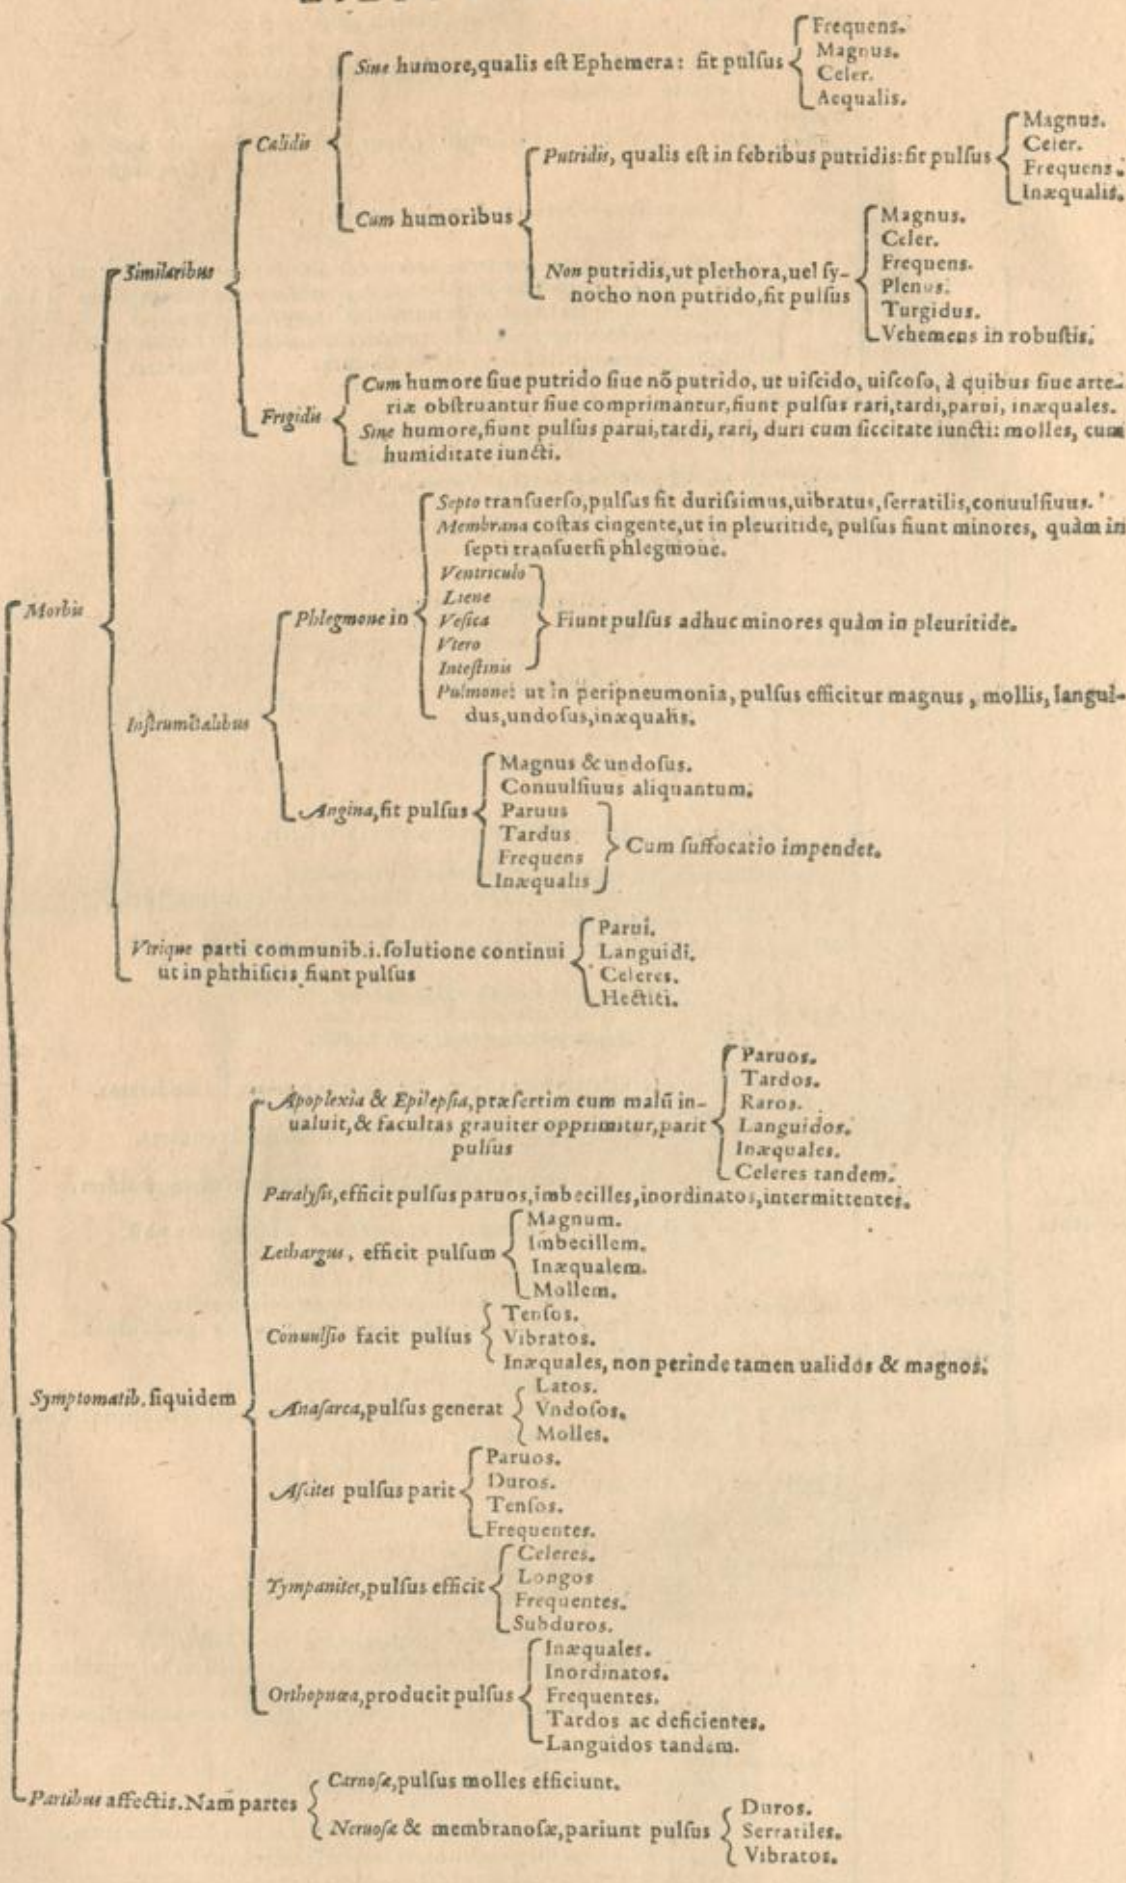 Frequens.
Sine humore, qualis eſt Ephemera: fit pulſus
Magnus.
Celer.
Aequalis.
Calidis
Magnus.
Putridis, qualis eſt in febribus putridis: fit pulſus
Celer.
Frequens.
Inæqualis.
Cum humoribus
Magnus.
Celer.
Similaribus
Frequens.
Non putridis, ut plethora, uel ſy-
nocho non putrido, fit pulſus
Plenus.
Turgidus.
Vehemens in robuſtis.
Frigidis
Cum humore ſiue putrido ſiue nõ putrido, ut uiſcido, uiſcoſo, à quibus ſiue arte-
riæ obſtruantur ſiue comprimantur, fiunt pulſus rari, tardi, parui, inæquales.
Sine humore, fiunt pulſus parui, tardi, rari, duri cum ſiccitate iuncti: molles, cum
humiditate iuncti.
Septo tranſuerſo, pulſus fit duriſsimus, uibratus, ſerratilis, conuulſiuus.
Membrana coſtas cingente, ut in pleuritide, pulſus fiunt minores, quàm in
ſepti tranſuerſi phlegmone.
Ventriculo
Liene
Morbis
Phlegmone in
Veſica
Fiunt pulſus adhuc minores quàm in pleuritide.
Vtero
Inteſtinis
Pulmone: ut in peripneumonia, pulſus efficitur magnus, mollis, langui-
dus, undoſus, inæqualis.
Inſtrumẽtalibus
Magnus & undoſus.
Conuulſiuus aliquantum.
Angina, fit pulſus
Paruus
Tardus
Cum ſuffocatio impendet.
Frequens
Inæqualis
Vtrique parti communib. i. ſolutione continui
ut in phthiſicis fiunt pulſus
Parui.
Languidi.
Celeres.
Hectici.
Paruos.
Tardos.
Apoplexia & Epilepſia, præſertim cum malũ in-
ualuit, & facultas grauiter opprimitur, parit
pulſus
Raros.
Languidos.
Inæquales.
Celeres tandem.
Paralyſis, efficit pulſus paruos, imbecilles, inordinatos, intermittentes.
Lethargus, efficit pulſum
Magnum.
Imbecillem.
Inæqualem.
Mollem.
Conuulſio facit pulſus
Tenſos.
Vibratos.
Inæquales, non perinde tamen ualidos & magnos.
Symptomatib. ſiquidem
Anaſarca, pulſus generat
Latos.
Vndoſos.
Molles.
Aſcites pulſus parit
Paruos.
Duros.
Tenſos.
Frequentes.
Tympanites, pulſus efficit
Celeres.
Longos
Frequentes.
Subduros.
Orthopnœa, producit pulſus
Inæquales.
Inordinatos.
Frequentes.
Tardos ac deficientes.
Languidos tandem.
Partibus affectis. Nam partes
Carnoſæ, pulſus molles efficiunt.
Neruoſæ & membranoſæ, pariunt pulſus
Duros.
Serratiles.
Vibratos.